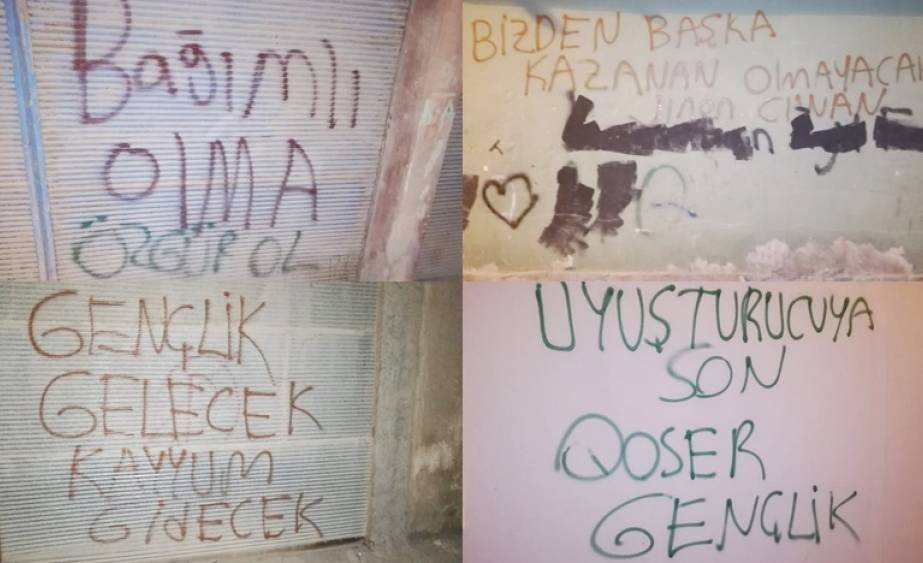 Bağımlı
OLMA
ÖZGÜR OL
BİZDEN BAŞKA
KAZANAN OLMAYACA
CIWAN
GENÇLİK
GELECEK
KAYYUM
GİDECEK
UYUŞTURUCUYA
SON
QOSER
GENÇLİK